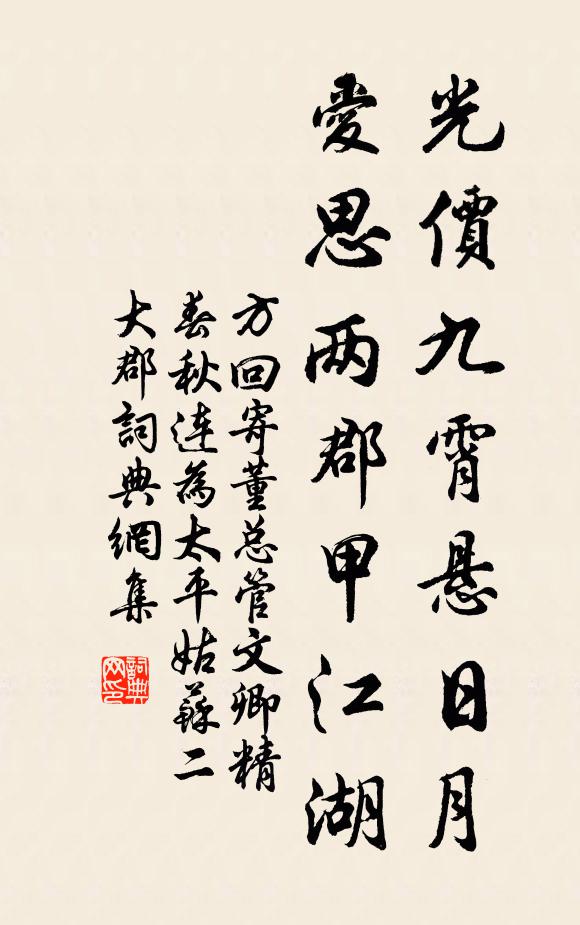 光價九霄悬日月
愛思两郡甲江湖
方回寄董总管文卿精
春秋连為太平姑蘇二
大郡詞典網集
詞典网印